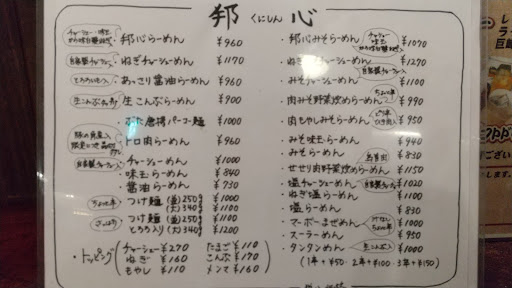 邦 くにしん 心
邦心らーめん ¥960
自家製チャーシュー ねぎチャーシューめん ¥1170
とろろいも入 あっさり醤油らーめん ¥960
生こんぶらーめん ¥900
ぶた唐揚パーコー麺 ¥1000
トロ肉らーめん ¥960
自家製チャーシュー チャーシューめん ¥1000
味玉らーめん ¥840
醤油らーめん ¥730
つけ麺 (並)250g ¥1000
(大)340g ¥1100
つけ麺 (並)250g ¥1100
とろろ入り (大)340g ¥1200
・トッピング
チャーシュー ¥270
ねぎ ¥160
もやし ¥110
たまご ¥110
こんぶ ¥170
メンマ ¥160
邦心みそらーめん ¥1070
・ねぎみそチャーシューめん ¥1270
・みそチャーシューめん ¥1100
・肉みそ野菜炒めらーめん ¥990
・肉もやしみそらーめん ¥950
・みそ味玉らーめん ¥940
・みそらーめん ¥830
・せせり肉野菜炒めらーめん ¥1150
・塩チャーシューめん 自家製チャーシュー ¥1020
・ねぎ塩らーめん ¥1000
・塩らーめん ¥830
・マーボーまぜめん ¥1000
・スーラーめん ¥1000
・タンタンめん 生こんぶ入 ¥1000
(1辛+¥50・2辛+¥100・3辛+¥150)